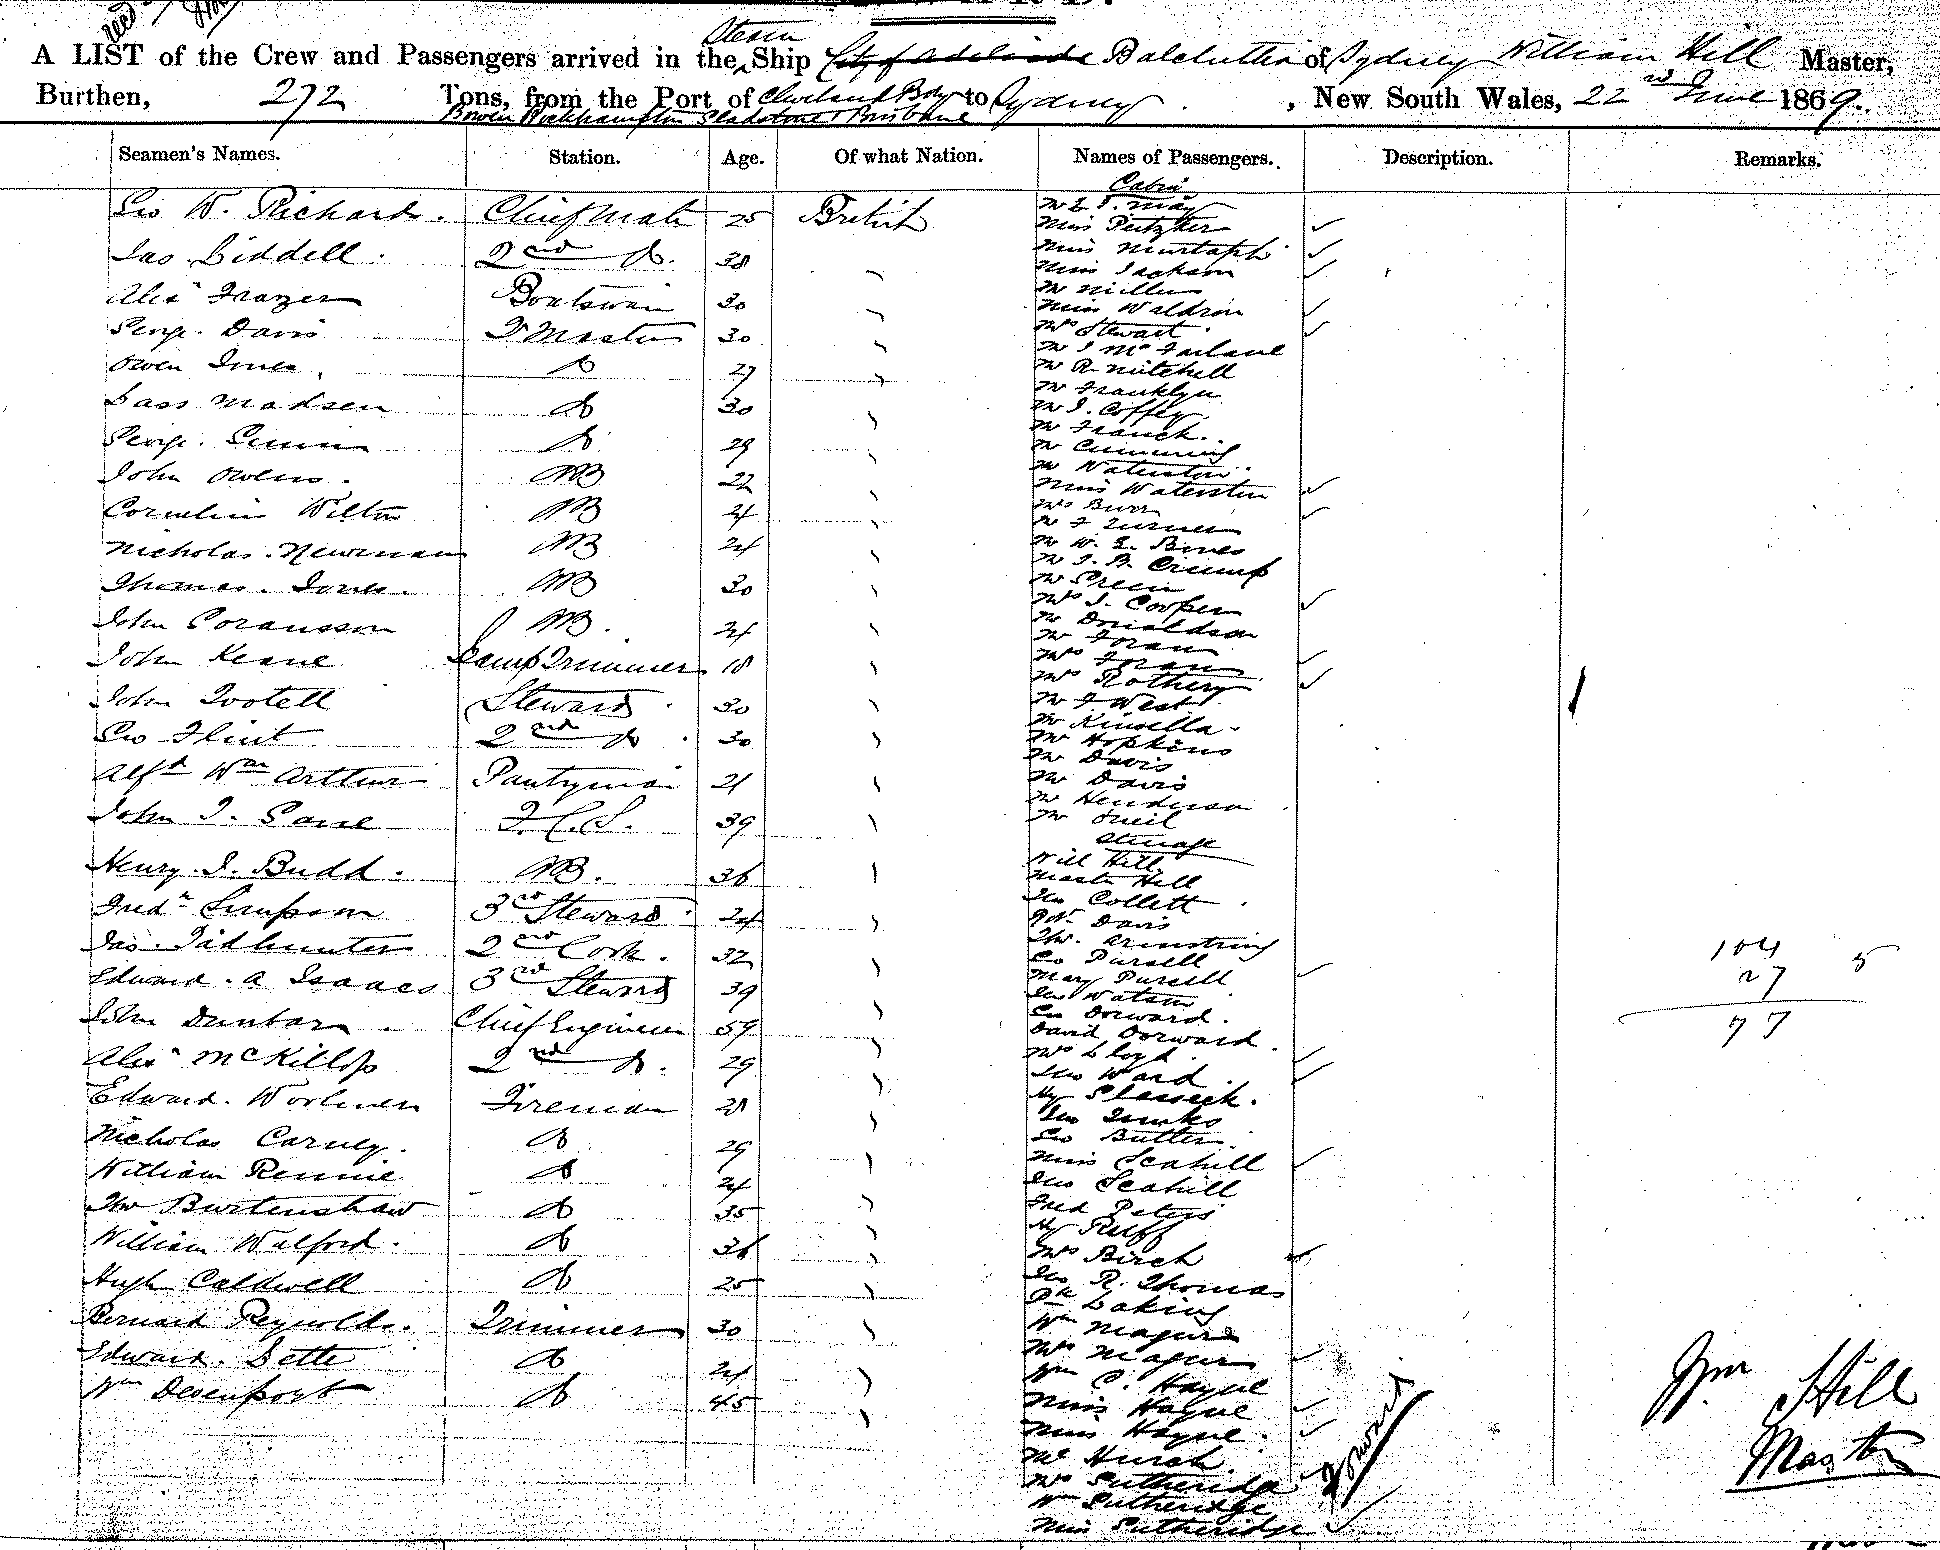 Steam
A LIST of the Crew and Passengers arrived in the Ship City of Adelaide Balclutha of Sydney William Hill Master,
Burthen, 272 Tons, from the Port of Cleveland Bay to Sydney, New South Wales, 22nd June 1869.
Bowen Rockhampton Gladstone & Brisbane
Seamen's Names. Station. Age. Of what Nation. Names of Passengers. Description. Remarks.
Cabin
Geo W. Richards. Chief Mate 25 British
Jas Liddell. 2nd Do. 38
Alexr Frazer Boatswain 30
George Davis Qr Master 30
Owen Jones Do 27
Lass Madsen Do 30
George Do 29
John Owens. AB 22
Cornelius Wilton AB 24
Nicholas Newman AB 24
Thomas Jones. AB 30
John AB. 24
John Keane Lamp Trimmer 18
John Tootell Steward 30
Geo Flint 2nd Do 30
Alfd Wm Arthur Pantryman 21
John J. F.C.S. 39
Henry J. Budd. AB. 36
Fredk Simpson 3rd Steward 24
Jas. Tadhunter 2nd Cook. 32
Edward A Isaacs 3rd Steward 39
John Dunbar Chief Engineer 59
Alexr McKillop 2nd Do. 29
Edward Fireman 28
Nicholas Carney. Do 29
William Rennie Do 24
Thos Burtenshaw Do 35
William Walford. Do 36
Hugh Caldwell Do 25
Bernard Reynolds. Trimmer 30
Edward Do 24
Wm Devenport Do 45
Mr May
Miss
Miss Murtaph
Miss Jackson
Mr Miller
Miss Waldron
Mrs Stewart
Mr J McFarlane
Mr R Mitchell
Mr Franklyn
Mr J. Coffey
Mr Franck.
Mr Cumming
Mr Waterston
Miss Waterston
Mrs Burr
Mr F Turner
Mr W. E. Bines
Mr J. B. Crump
Mr Green
Mrs J. Cooper
Mr Donaldson
Mr Foran
Mrs Foran
Mrs Rothery
Mr F West
Mr Kinsella.
Mr Hopkins
Mr Davis
Mr Davis
Mr Henderson
Mr Neil
Steerage
Will Hill
Master Hill
Jno Collett
Davis
Thos. Armstrong
Geo Pursell
Mary Pursell
Jno Watson
Geo Dorward.
David Dorward.
Mrs Lloyd.
Jno Ward.
Hy
Jno
Geo Butler
Miss Scahill
Jno Scahill
Fred Peters
Hy Ruff
Mrs Birch
Jno R. Thomas
Laking
Wm Maguire
Mrs Maguire
Wm C. Hayne
Miss Hayne
Miss Hayne.
Mr Hurst.
Mrs Sutheridge
Wm Sutheridge
Miss Sutheridge
104
27 5
77
Forward
Wm Hill
Master